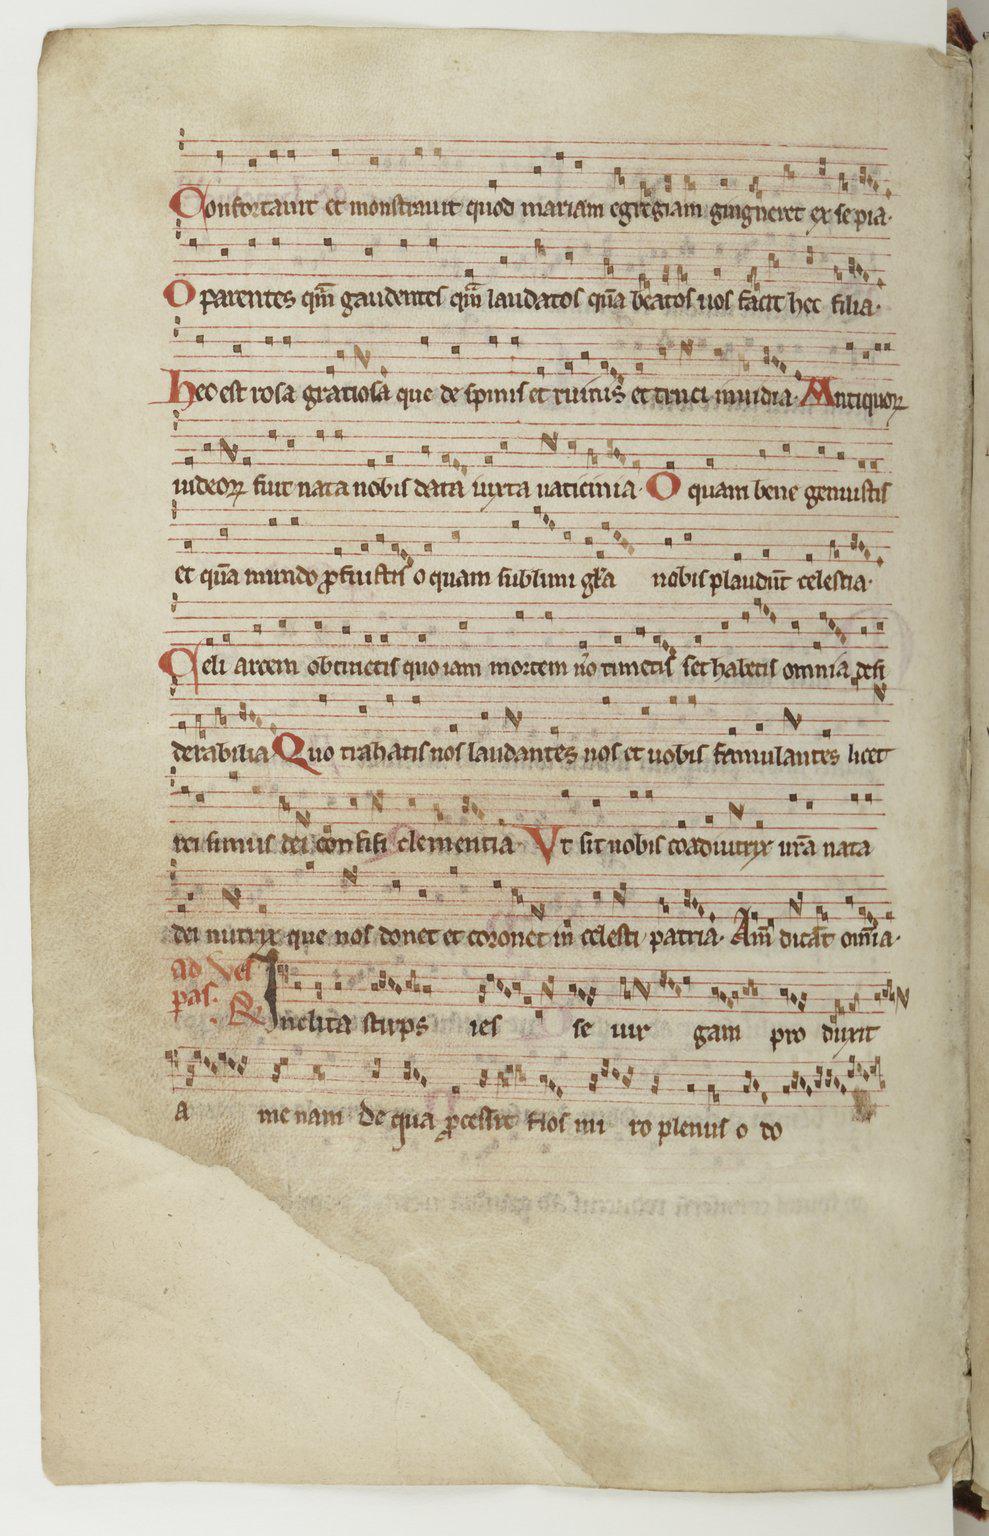 Confortauit et monstrauit quod mariam egregiam gingneret ex se pia.
O parentes qm̄ gaudentes qm̄ laudatos qūa beatos uos facit hec filia.
Hec est rosa gratiosa que de spinis et ruinis et truci inuidia. Antiquoꝝ
iudeoꝝ fiut nata nobis data iuxta uaticinia. O quam bene genuistis
et qūa mundo ꝓfuistis o quam sublimi gl̄a nobis plaudūt celestia.
Celi arcem obtinetis quo iam mortem nō timetis set habetis omnia desi
derabilia. Quo trahatis nos laudantes uos et uobis famulantes licet
rei simus dei confisi clementia. Vt sit nobis coadiutrix ur̄a nata
dei nutrix que nos donet et coronet in celesti patria. Am̄ dicāt om̄ia.
ad Ves
pas. R Inclita stirps ies se uir gam pro duxit
a me nam de qua ꝓcessit flos mi ro plenus o do